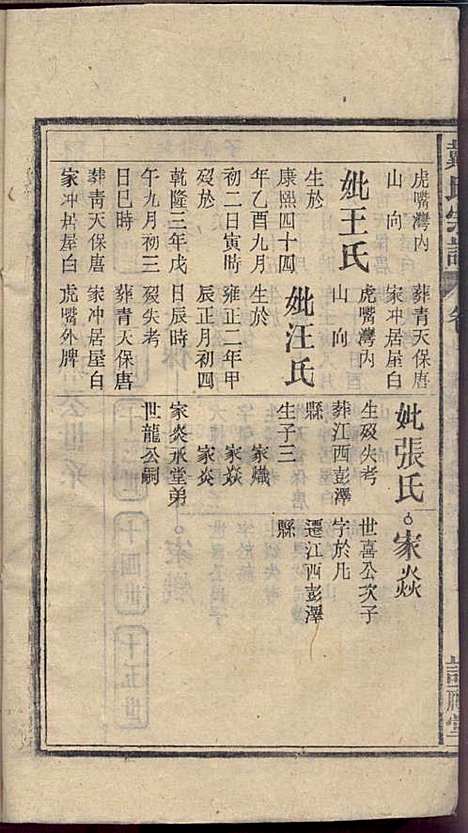 氏宗譜
卷
虎嘴灣內
山向
妣王氏
生於
康熙四十四
年乙酉九月
初二日寅時
歿於
乾隆三年戊
午九月初三
日巳時
葬青天保唐
家冲居屋白
葬青天保唐
家冲居屋白
虎嘴灣內
山向
妣汪氏
生於
雍正二年甲
辰正月初四
日辰時
歿失考
葬青天保唐
家冲居屋白
虎嘴外牌
妣張氏
生歿失考
葬江西彭澤
縣
生子三
家熾
家焱
家炎
家炎承堂弟
世龍公嗣
家焱
世喜公次子
字於凡
遷江西彭澤
縣